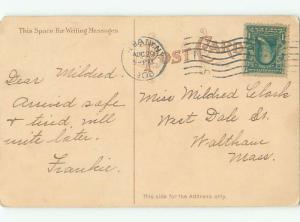 This Space for Writing Messages
POST CARD
AUG 20
Dear Mildred.
Arrived safe
& tired will
write later.
Frankie.
Miss Mildred Clark
West Dale St.
Waltham
Mass.
This side for the Address only.